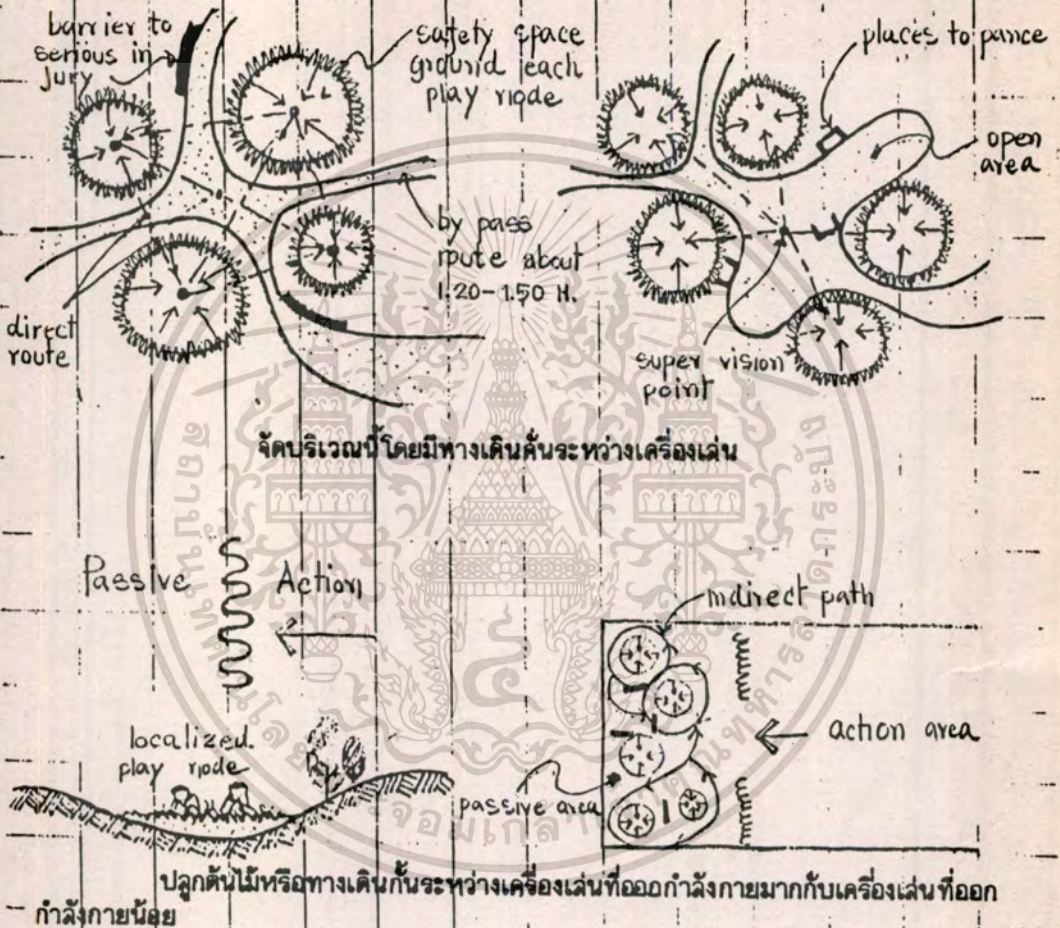 barrier to
serious in
jury
safety space
ground each
play node
places to pance
open
area
by pass
route about
1.20-1.50 M.
direct
route
super vision
point
จัดบริเวณนี้โดยมีทางเดินคั่นระหว่างเครื่องเล่น
Passive
Action
indirect path
localized
play node
action area
passive area
ปลูกต้นไม้หรือทางเดินกั้นระหว่างเครื่องเล่นที่ออกกำลังกายมากกับเครื่องเล่นที่ออก
กำลังกายน้อย